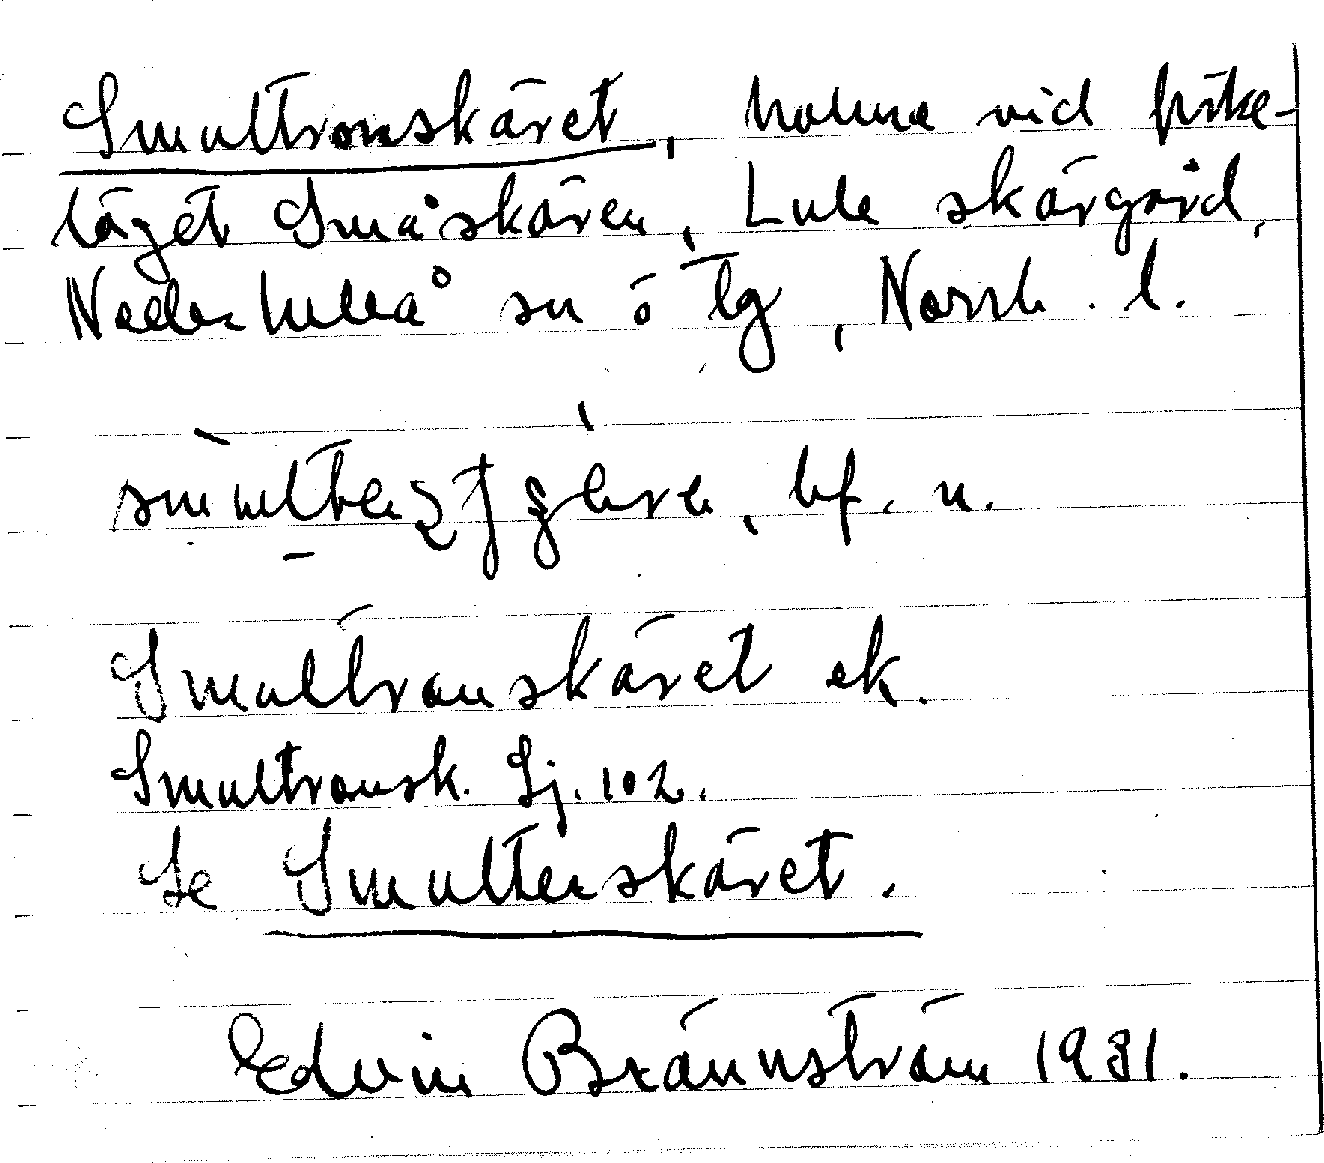 Smultronskäret, holme vid fiske-
läget Småskären, Lule skärgård,
Nederluleå sn ö lg, Norrb. l.
bf. n.
Smultronskäret ek.
Smultronsk. Sj. 102.
Se Smulterskäret.
Edvin Brännström 1931.